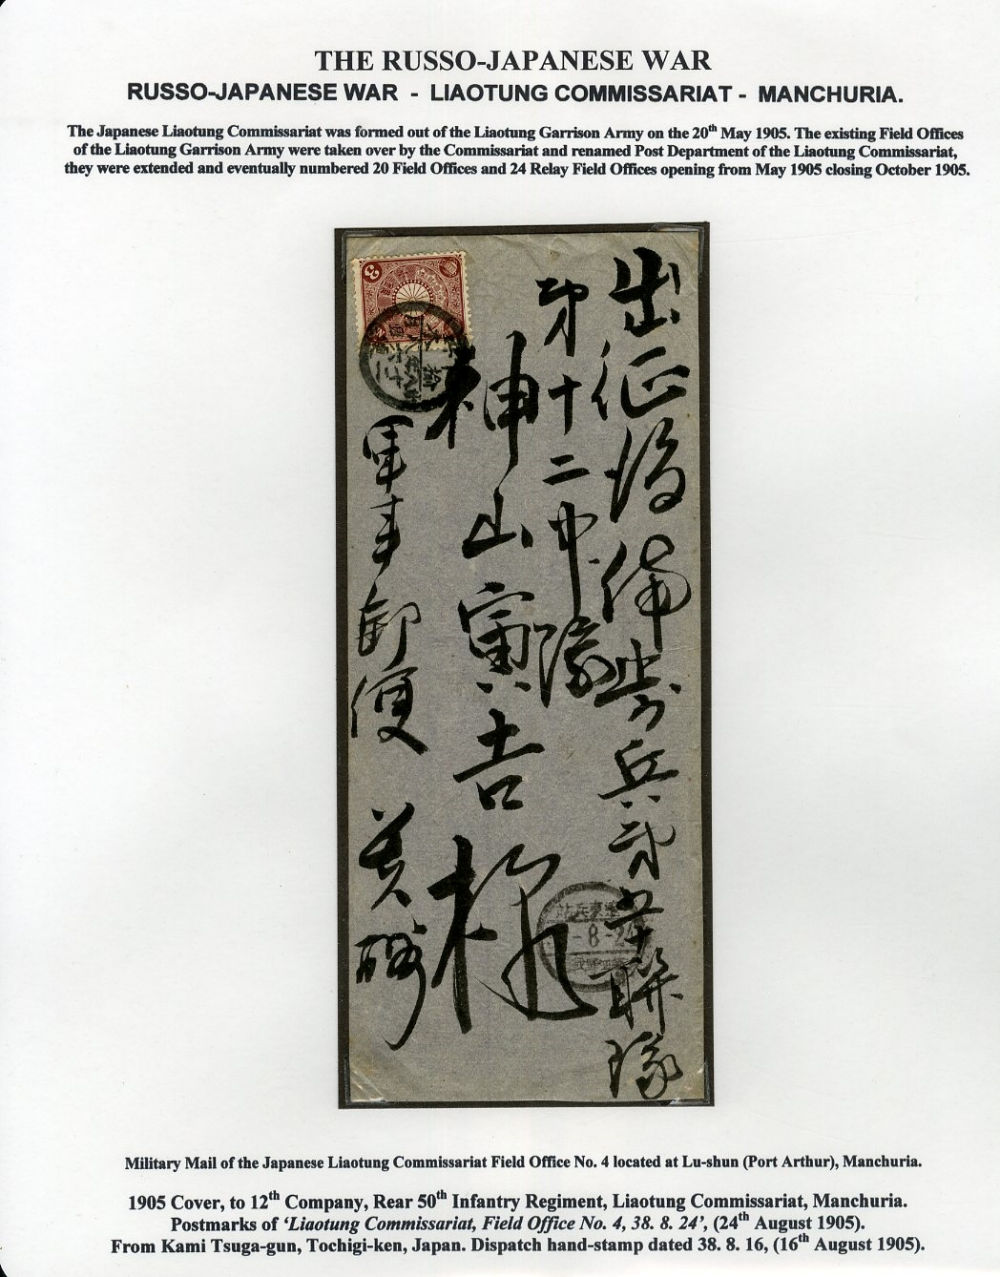 THE RUSSO-JAPANESE WAR
RUSSO-JAPANESE WAR - LIAOTUNG COMMISSARIAT - MANCHURIA.
The Japanese Liaotung Commissariat was formed out of the Liaotung Garrison Army on the 20th May 1905. The existing Field Offices
of the Liaotung Garrison Army were taken over by the Commissariat and renamed Post Department of the Liaotung Commissariat,
they were extended and eventually numbered 20 Field Offices and 24 Relay Field Offices opening from May 1905 closing October 1905.
出征後備歩兵第五十聯隊
第十二中隊
神山寅吉様
軍事郵便
3
8-24
Military Mail of the Japanese Liaotung Commissariat Field Office No. 4 located at Lu-shun (Port Arthur), Manchuria.
1905 Cover, to 12th Company, Rear 50th Infantry Regiment, Liaotung Commissariat, Manchuria.
Postmarks of ‘Liaotung Commissariat, Field Office No. 4, 38. 8. 24’, (24th August 1905).
From Kami Tsuga-gun, Tochigi-ken, Japan. Dispatch hand-stamp dated 38. 8. 16, (16th August 1905).